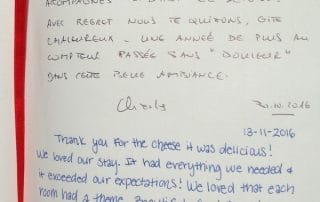 AVEC REGRET NOUS TE QUITONS, GITE
CHALEUREUX. UNE ANNÉE DE PLUS AU
COMPTEUR PASSÉE SANS "DOULEUR"
DANS CETTE BELLE AMBIANCE.
30.10.2016
13-11-2016
Thank you For the cheese it was delicious!
We loved our stay. It had everything we needed &
it exceeded our expectations! We loved that each
room had a theme.